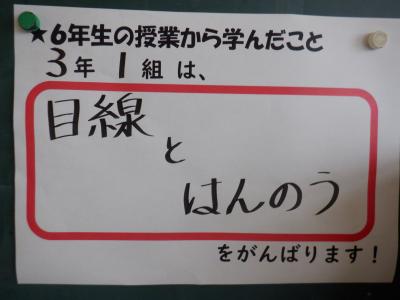 ★6年生の授業から学んだこと
3年1組は、
目線
と
はんのう
をがんばります！